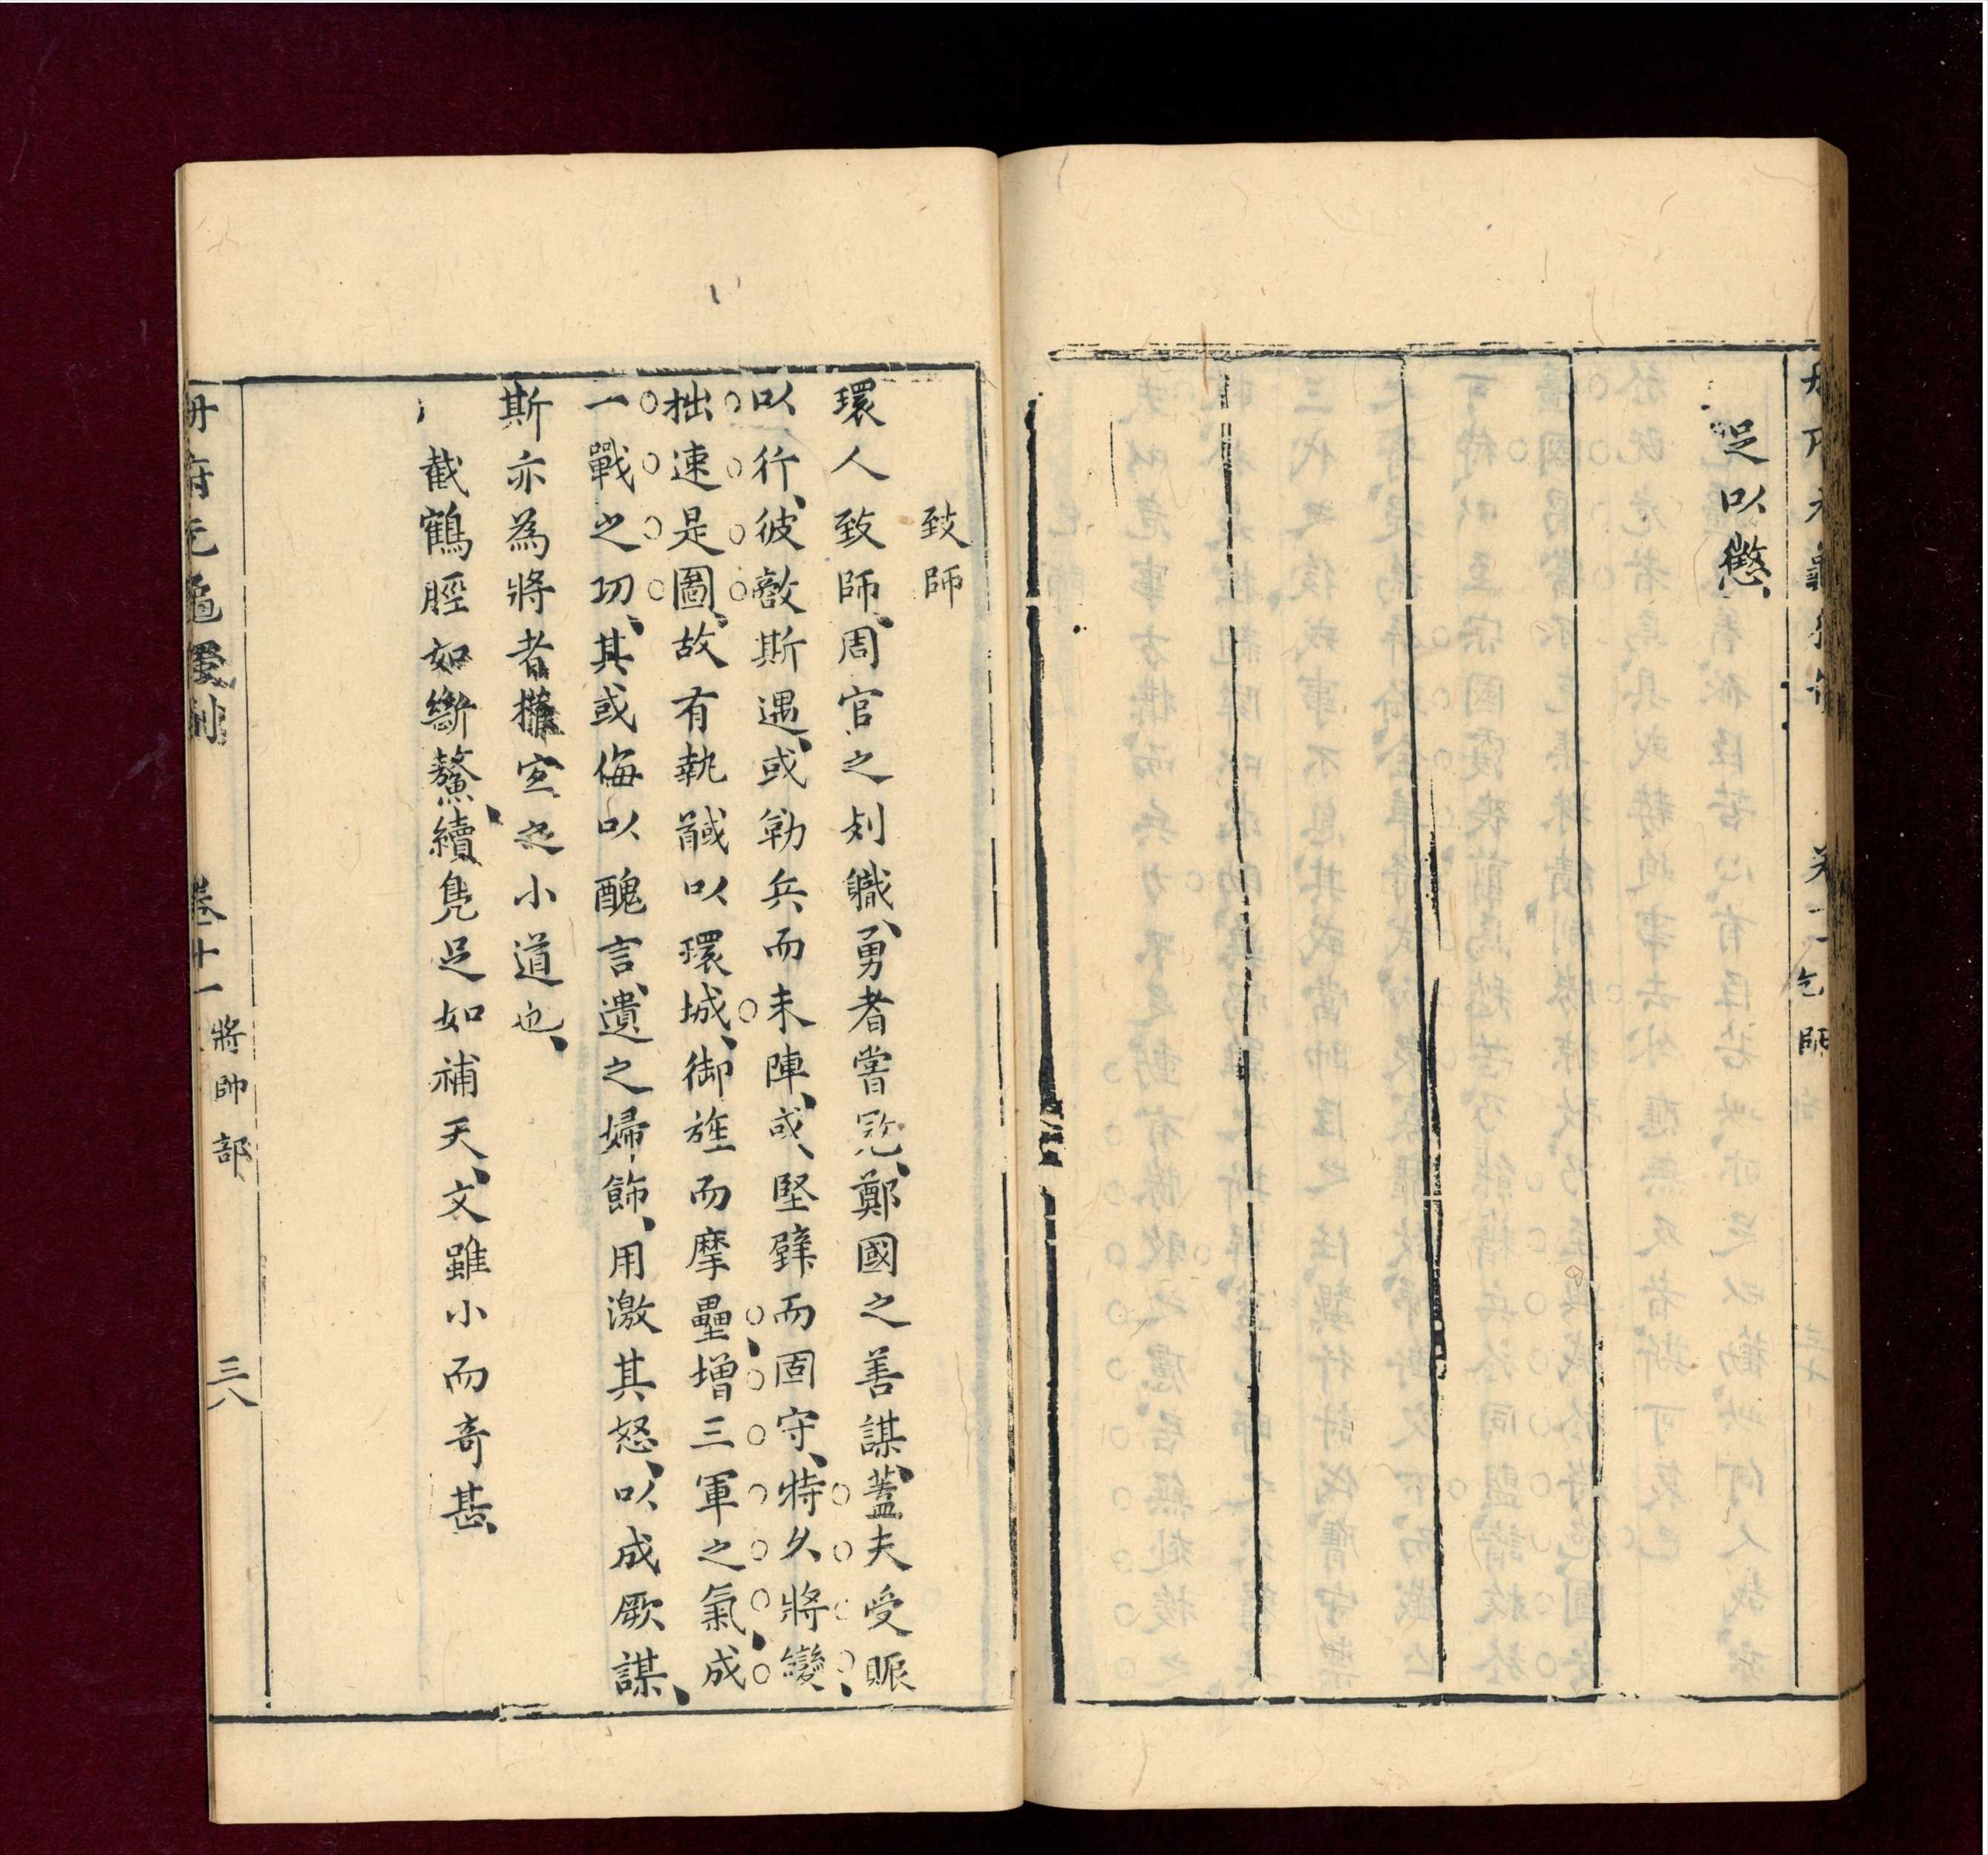 足以懲
乞師
致師
環人致師周官之列職勇者嘗㓂鄭國之善謀蓋夫受脤
以行彼敵斯遇或勒兵而未陣或堅壁而固守持久將變
拙速是圖故有執馘以環城御旌而摩壘增三軍之氣成
一戰之功其或侮以醜言遺之婦飾用激其怒以成厥謀
斯亦為將者權宜之小道也
截鶴脛如斷鰲續鳧足如補天文雖小而奇甚
冊府元龜
卷十一
將帥部
三八